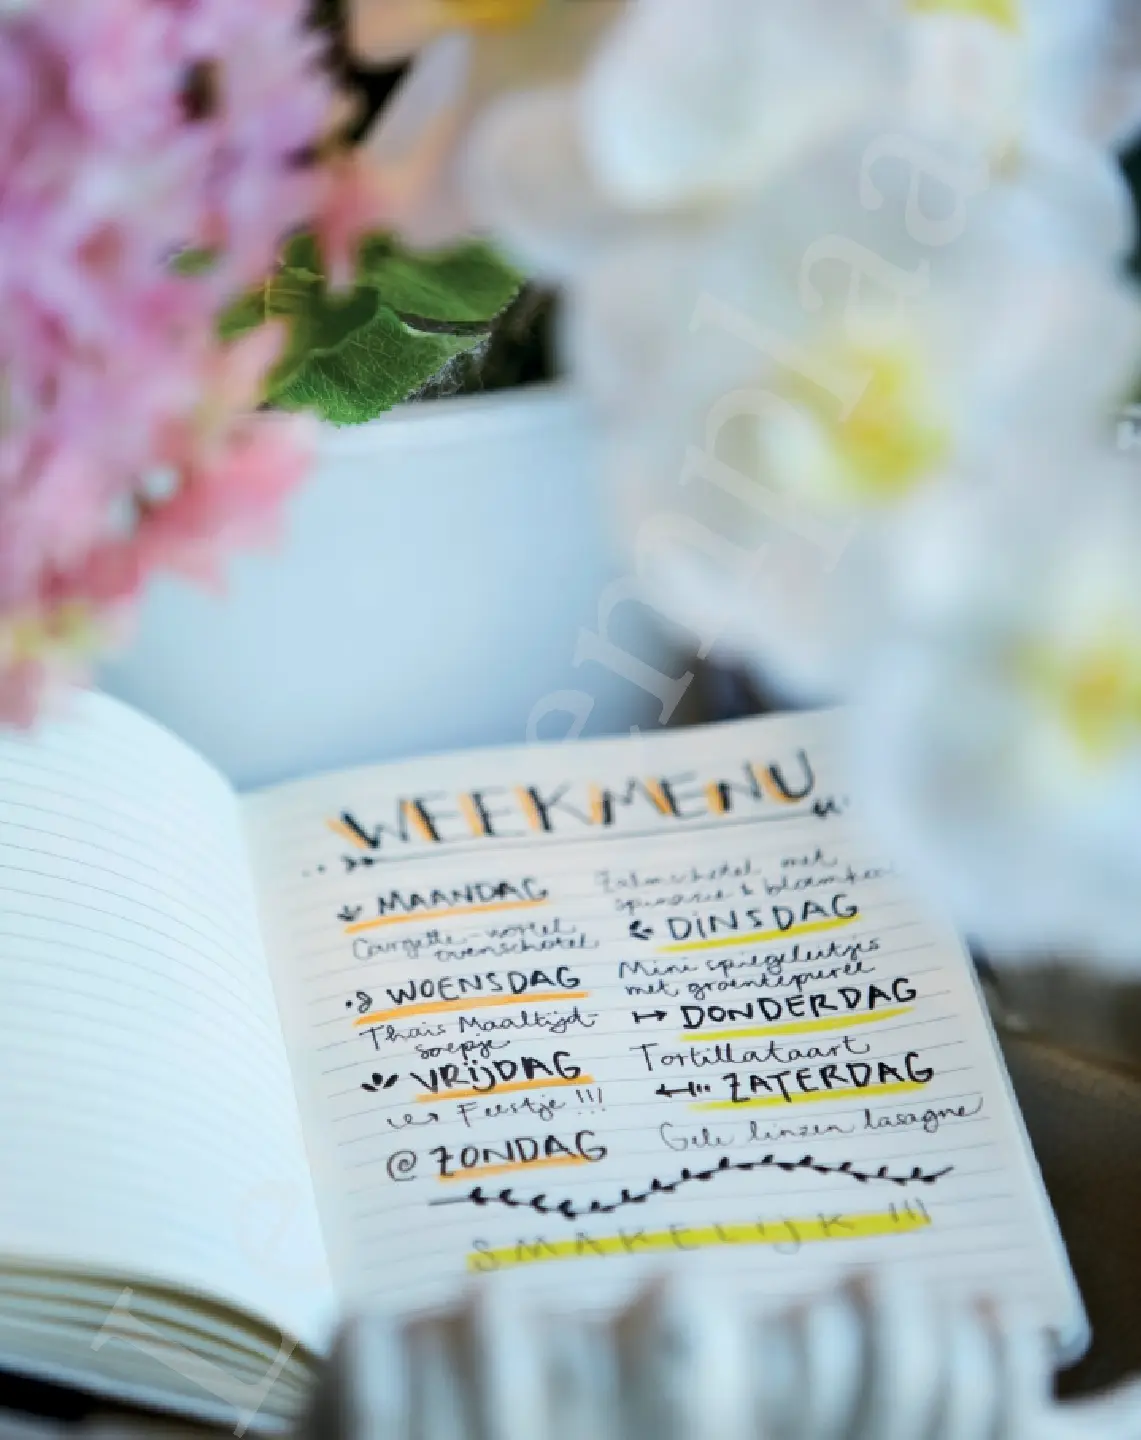 WEEKMENU
MAANDAG
Courgette-wortel
ovenschotel
WOENSDAG
Thais Maaltijd-
soepje
VRIJDAG
Feestje !!!
@ ZONDAG
Zalmschotel met
spinazie &
DINSDAG
Mini spiegeleitjes
met groentepuree
DONDERDAG
Tortillataart
ZATERDAG
Gele linzen lasagne
SMAKELIJK !!!